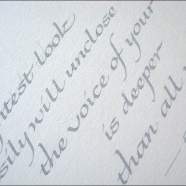 ntest look
sily will unclose
the voice of your
is deeper
than all